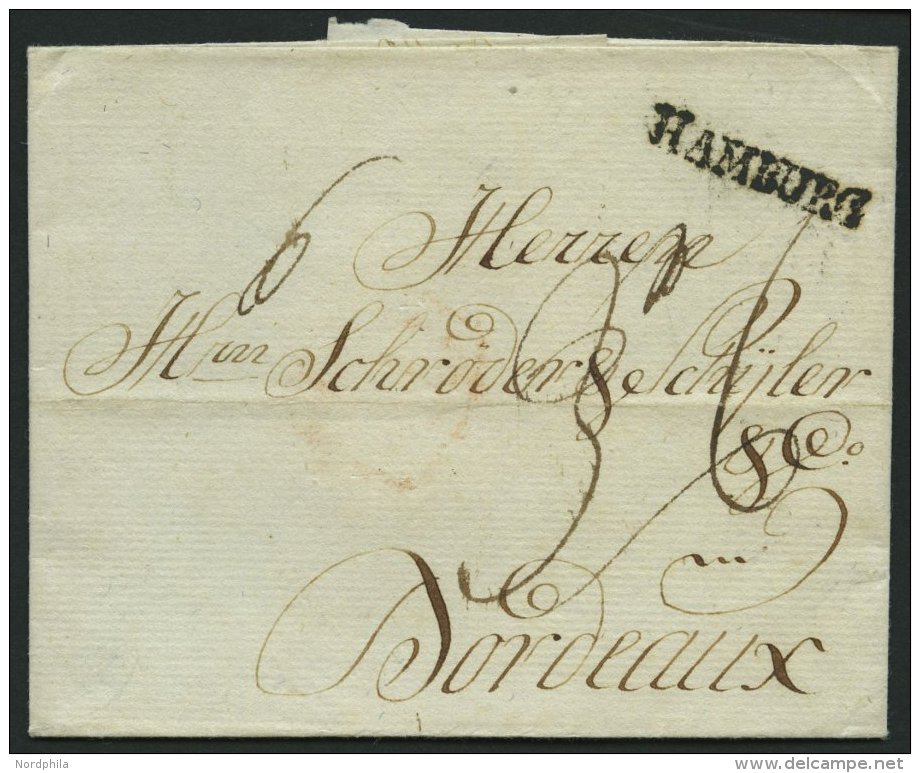 HAMBURG
6
Herren
Hrn Schröder & Schÿler
& Co.
36
Bordeaux
Nordphila
www.delcampe.net